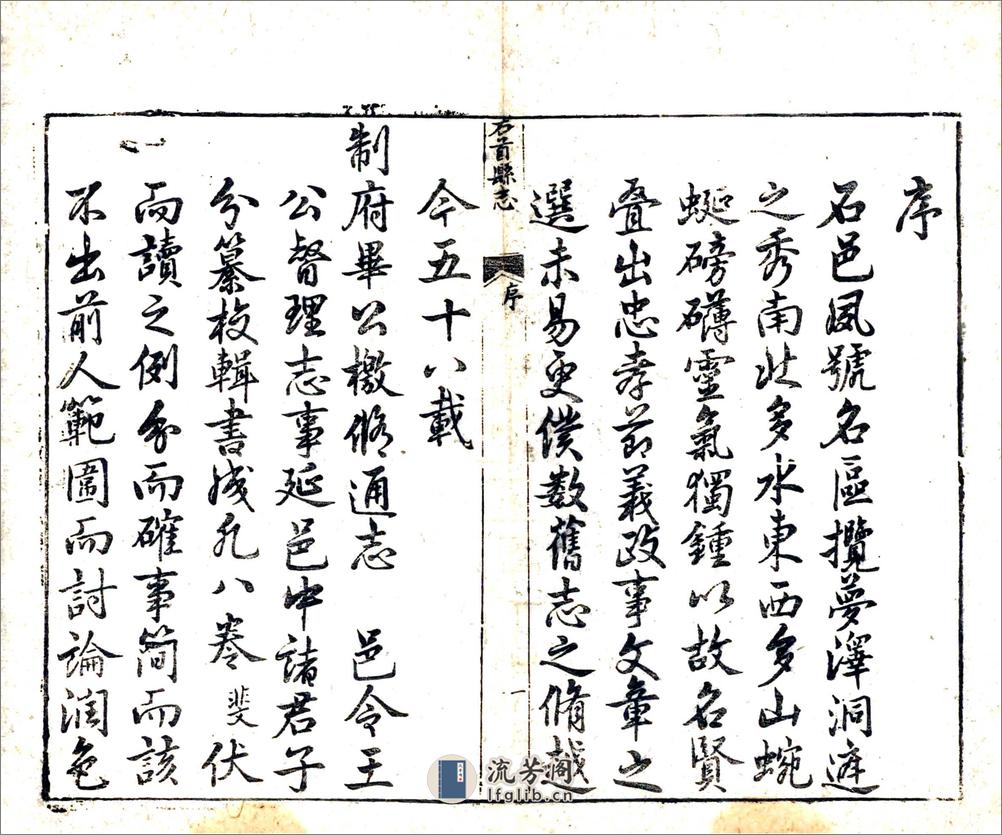 序
石邑夙號名區攬夢澤洞庭
之秀南北多水東西多山蜿
蜒磅礴靈氣獨鍾以故名賢
疊出忠孝節義政事文章之
選未易更僕数舊志之脩越
石首縣志
序
一
今五十八載
制府畢公檄脩通志 邑令王
公督理志事延邑中諸君子
分纂校輯書成凡八卷斐伏
而讀之例分而確事简而該
不出前人範圍而討論润色
流芳阁
lfglib.cn